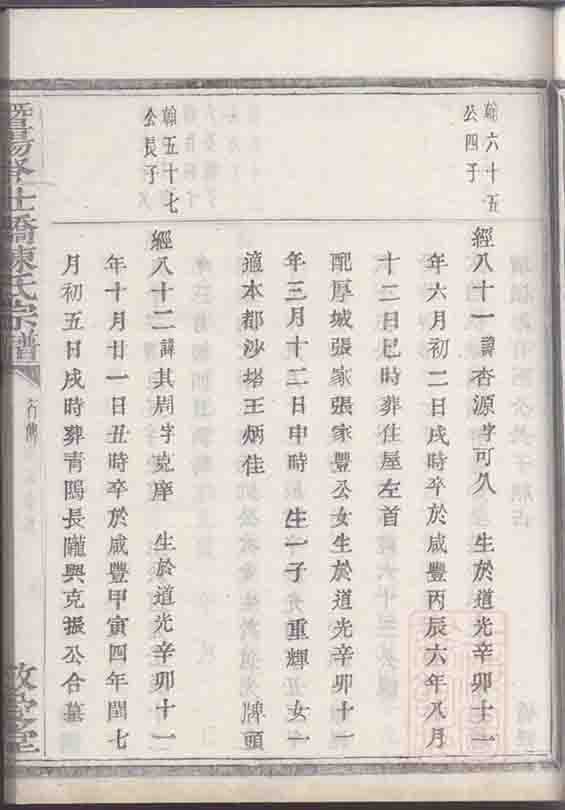 翰六十五
公四子
經八十一諱杏源字可久 生於道光辛卯十一
年六月初二日戌時卒於咸豐丙辰六年八月
十二日巳時葬住屋左首
配厚城張家張家豐公女生於道光辛卯十一
年三月十二日申時 生一子 重輝 女一
適本都沙塔王炳佳 牌頭
翰五十七
公長子
經八十二諱其周字克庠 生於道光辛卯十一
年十月廿一日丑時卒於咸豐甲寅四年閏七
月初五日戌時葬青隝長隴與克振公合墓
暨陽 橋陳氏宗譜
行傳